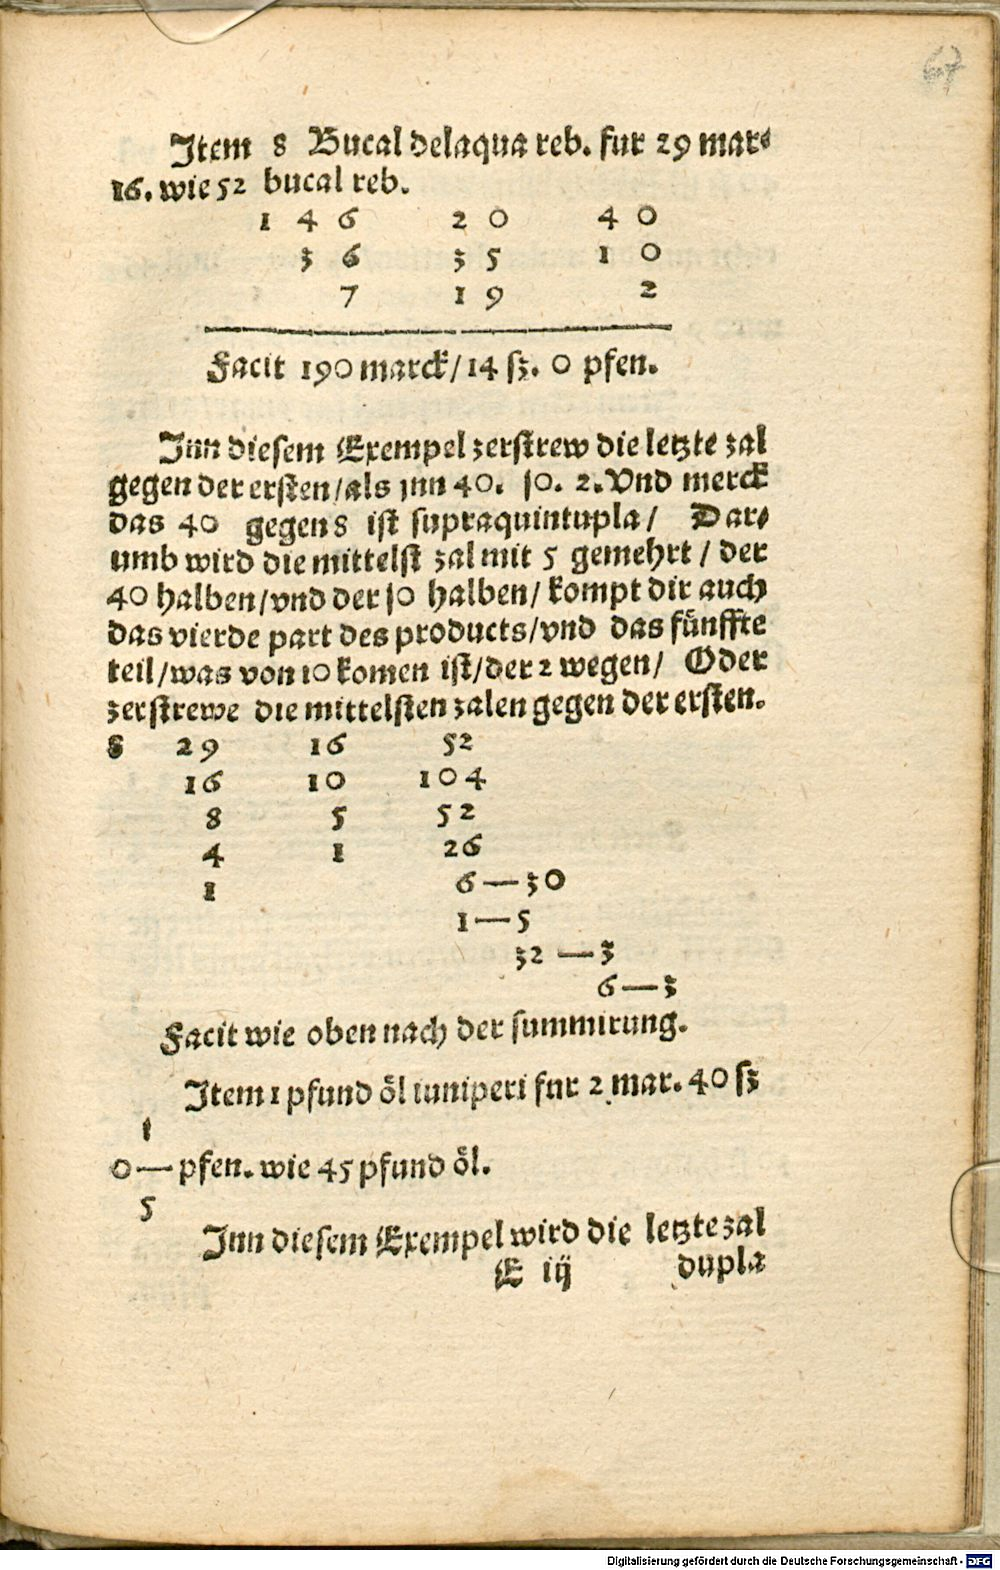 67
Item 8 Bucal delaqua reb. fur 29 mar⸗
16. wie 52 bucal reb.
1 4 6 2 0 4 0
3 6 3 5 1 0
7 1 9 2
Facit 190 marck/14 ſz. 0 pfen.
Inn dieſem Exempel zerſtrew die letzte zal
gegen der erſten/als jnn 40. j0. 2. Vnd merck
das 40 gegen 8 iſt ſupraquintupla/ Dar⸗
umb wird die mittelſt zal mit 5 gemehrt / der
40 halben/vnd der j0 halben/ kompt dir auch
das vierde part des products/vnd das fünffte
teil/was von 10 komen iſt/der 2 wegen/ Oder
zerſtrewe die mittelſten zalen gegen der erſten.
8 29 16 52
16 10 104
8 5 52
4 1 26
1 6—30
1—5
32—3
6—3
Facit wie oben nach der ſummirung.
Item 1 pfund öl iuniperi fur 2 mar. 40 ſz
1
0— pfen. wie 45 pfund öl.
5
Inn dieſem Exempel wird die letzte zal
E iij dupla
Digitalisierung gefördert durch die Deutsche Forschungsgemeinschaft - DFG